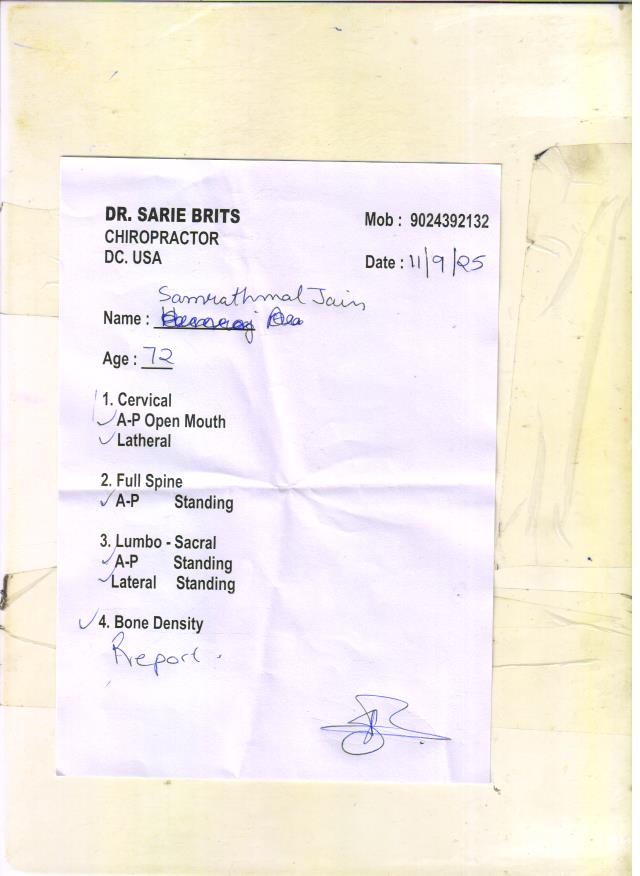 DR. SARIE BRITS
CHIROPRACTOR
DC. USA
Mob : 9024392132
Date : 11/9/25
Samrathmal Jain
Name :
Age : 72
1. Cervical
A-P Open Mouth
Latheral
2. Full Spine
A-P Standing
3. Lumbo - Sacral
A-P Standing
Lateral Standing
4. Bone Density
Rreport .